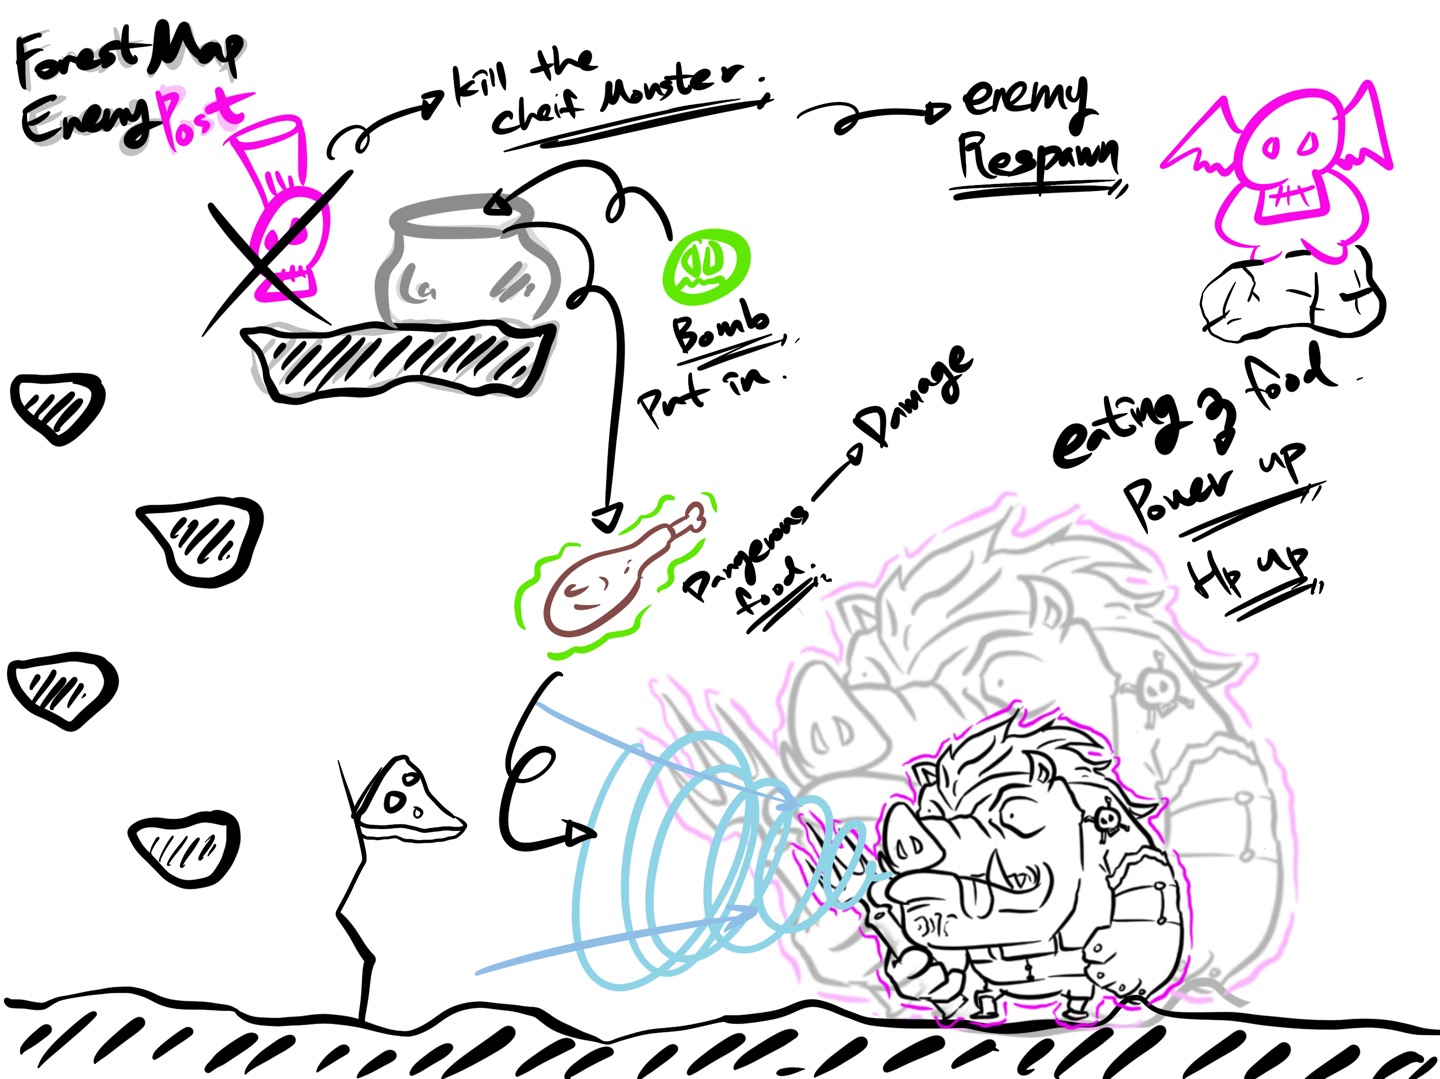 Forest Map
Enemy Post
kill the
cheif Monster.
enemy
Respawn
Bomb
Put in.
Damage
Dangerous
food.
eating food.
Power up
Hp up